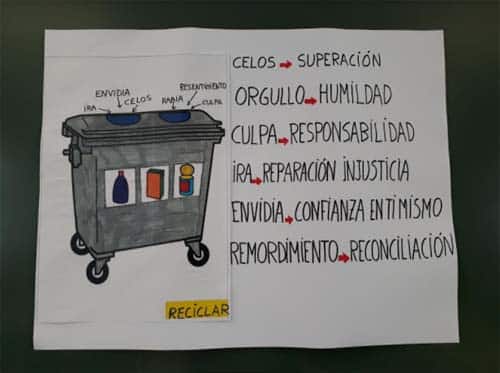 ENVIDIA
RESENTIMIENTO
IRA
CELOS
RABIA
CULPA
RECICLAR
CELOS → SUPERACIÓN
ORGULLO → HUMILDAD
CULPA → RESPONSABILIDAD
IRA → REPARACIÓN INJUSTICIA
ENVIDIA → CONFIANZA EN TI MISMO
REMORDIMIENTO → RECONCILIACIÓN